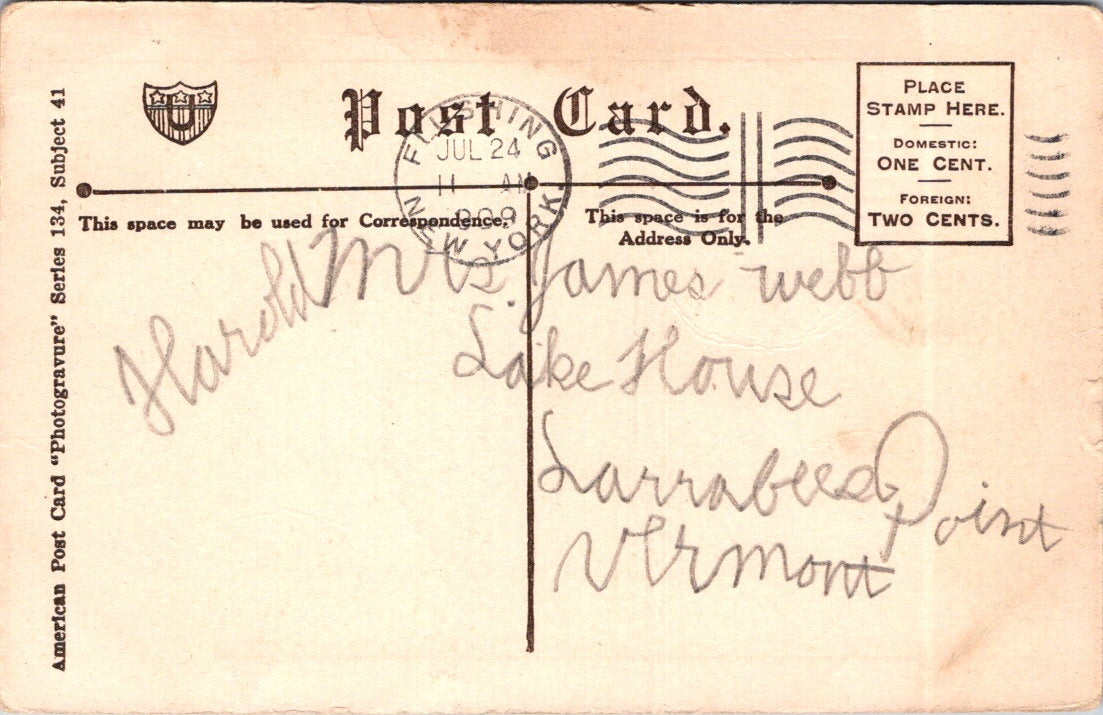 American Post Card "Photogravure" Series 134, Subject 41
U
Post Card.
FLUSHING
JUL 24
11 AM
1909
NEW YORK
PLACE
STAMP HERE.
DOMESTIC:
ONE CENT.
FOREIGN:
TWO CENTS.
This space may be used for Correspondence.
This space is for the
Address Only.
Harold
Mrs. James webb
Lake House
Larrabees Point
Vermont